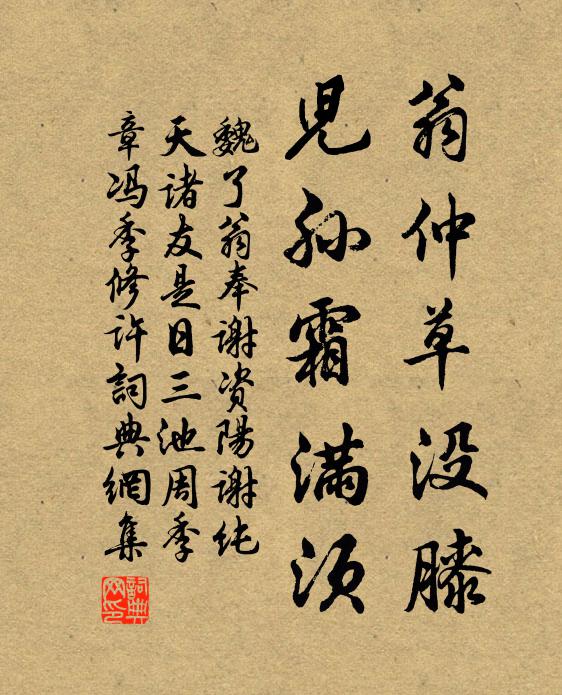 翁仲草没膝
児孙霜满须
魏了翁奉谢资陽谢纯
天诸友是日三池周季
章冯季修许詞典網集
詞典网印